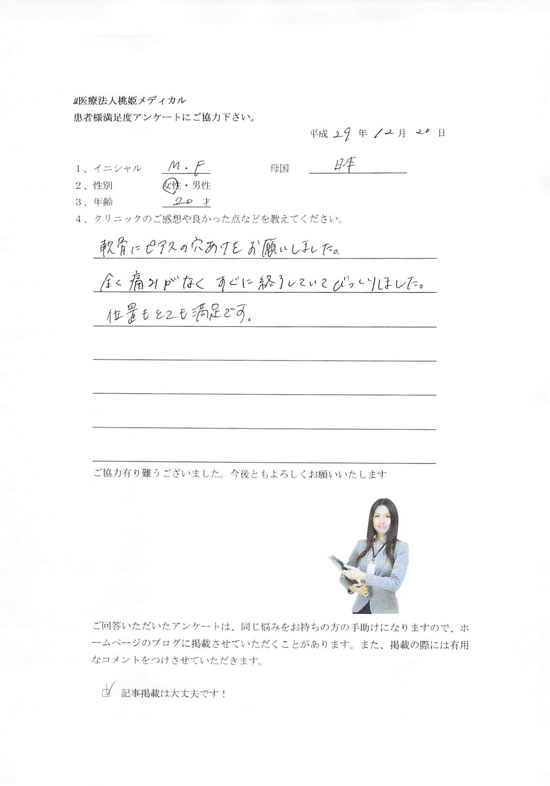 医療法人桃姫メディカル
患者様満足度アンケートにご協力下さい。
平成 29 年 12 月 20 日
1、イニシャル M.F 母国 日本
2、性別 女性・男性
3、年齢 20才
4、クリニックのご感想や良かった点などを教えてください。
軟骨にピアスの穴あけをお願いしました。
全く痛みがなくすぐに終了していてびっくりしました。
位置もとても満足です。
ご協力有り難うございました。今後ともよろしくお願いいたします
ご回答いただいたアンケートは、同じ悩みをお持ちの方の手助けになりますので、ホ
ームページのブログに掲載させていただくことがあります。また、掲載の際には有用
なコメントをつけさせていただきます。
記事掲載は大丈夫です！